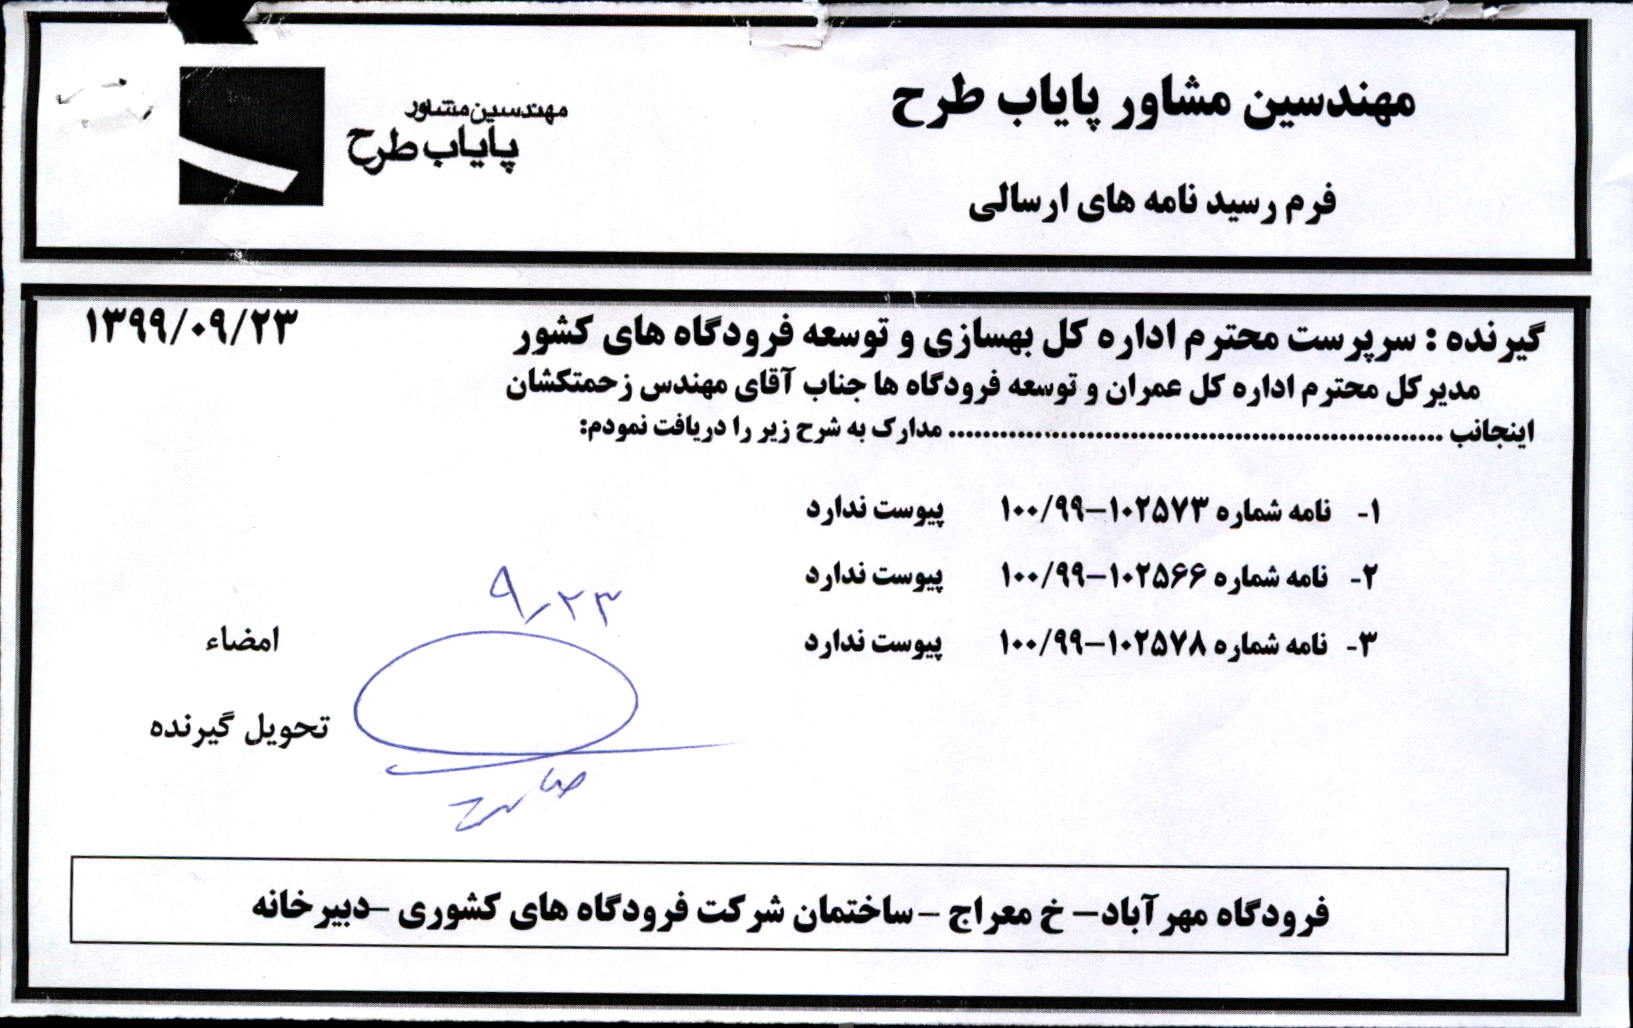 مهندسین مشاور پایاب طرح
فرم رسید نامه های ارسالی
مهندسین مشاور
پایاب طرح
۱۳۹۹/۰۹/۲۳
گیرنده : سرپرست محترم اداره کل بهسازی و توسعه فرودگاه های کشور
مدیرکل محترم اداره کل عمران و توسعه فرودگاه ها جناب آقای مهندس زحمتکشان
اینجانب ........................................................ مدارک به شرح زیر را دریافت نمودم:
۱- نامه شماره ۱۰۲۵۷۳–۱۰۰/۹۹ پیوست ندارد
۲- نامه شماره ۱۰۲۵۶۶–۱۰۰/۹۹ پیوست ندارد
۳- نامه شماره ۱۰۲۵۷۸–۱۰۰/۹۹ پیوست ندارد
۹/۲۳
امضاء
تحویل گیرنده
فرودگاه مهرآباد– خ معراج –ساختمان شرکت فرودگاه های کشوری –دبیرخانه